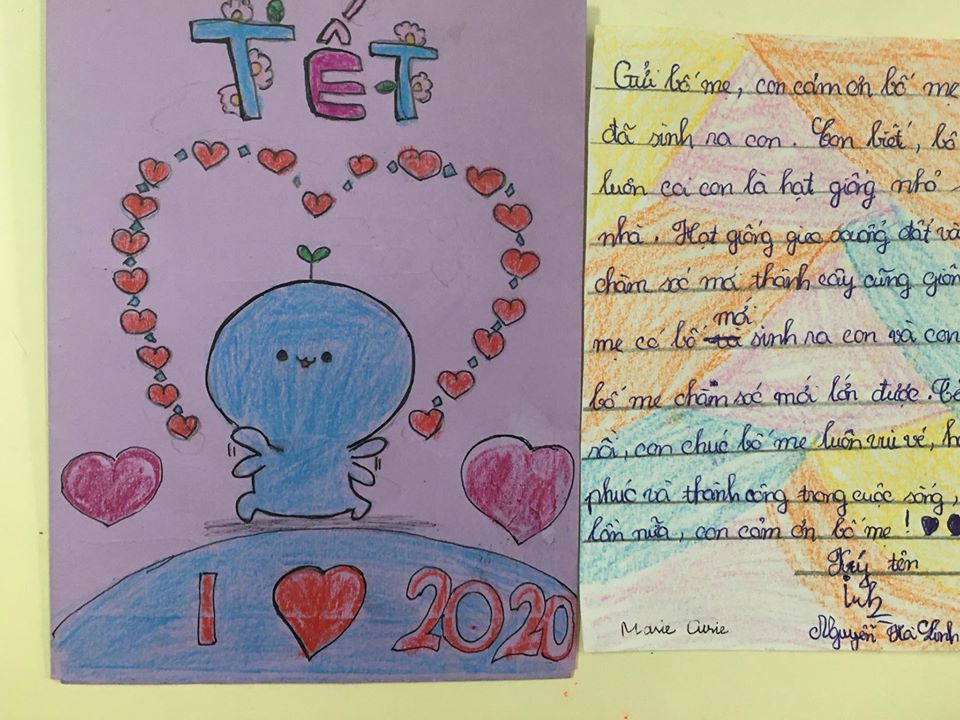 TẾT
I 2020
Gửi bố mẹ, con cảm ơn bố mẹ
đã sinh ra con. Con biết, bố
luôn coi con là hạt giống nhỏ
nhà. Hạt giống gieo xuống đất và
chăm sóc mới thành cây cũng giốn
mẹ có bố mới sinh ra con và con
bố mẹ chăm sóc mới lớn được. Tế
rồi, con chúc bố mẹ luôn vui vẻ, hạ
phúc và thành công trong cuộc sống,
lần nữa, con cảm ơn bố mẹ!
Ký tên
Linh
Marie Curie
Nguyễn Hà Linh